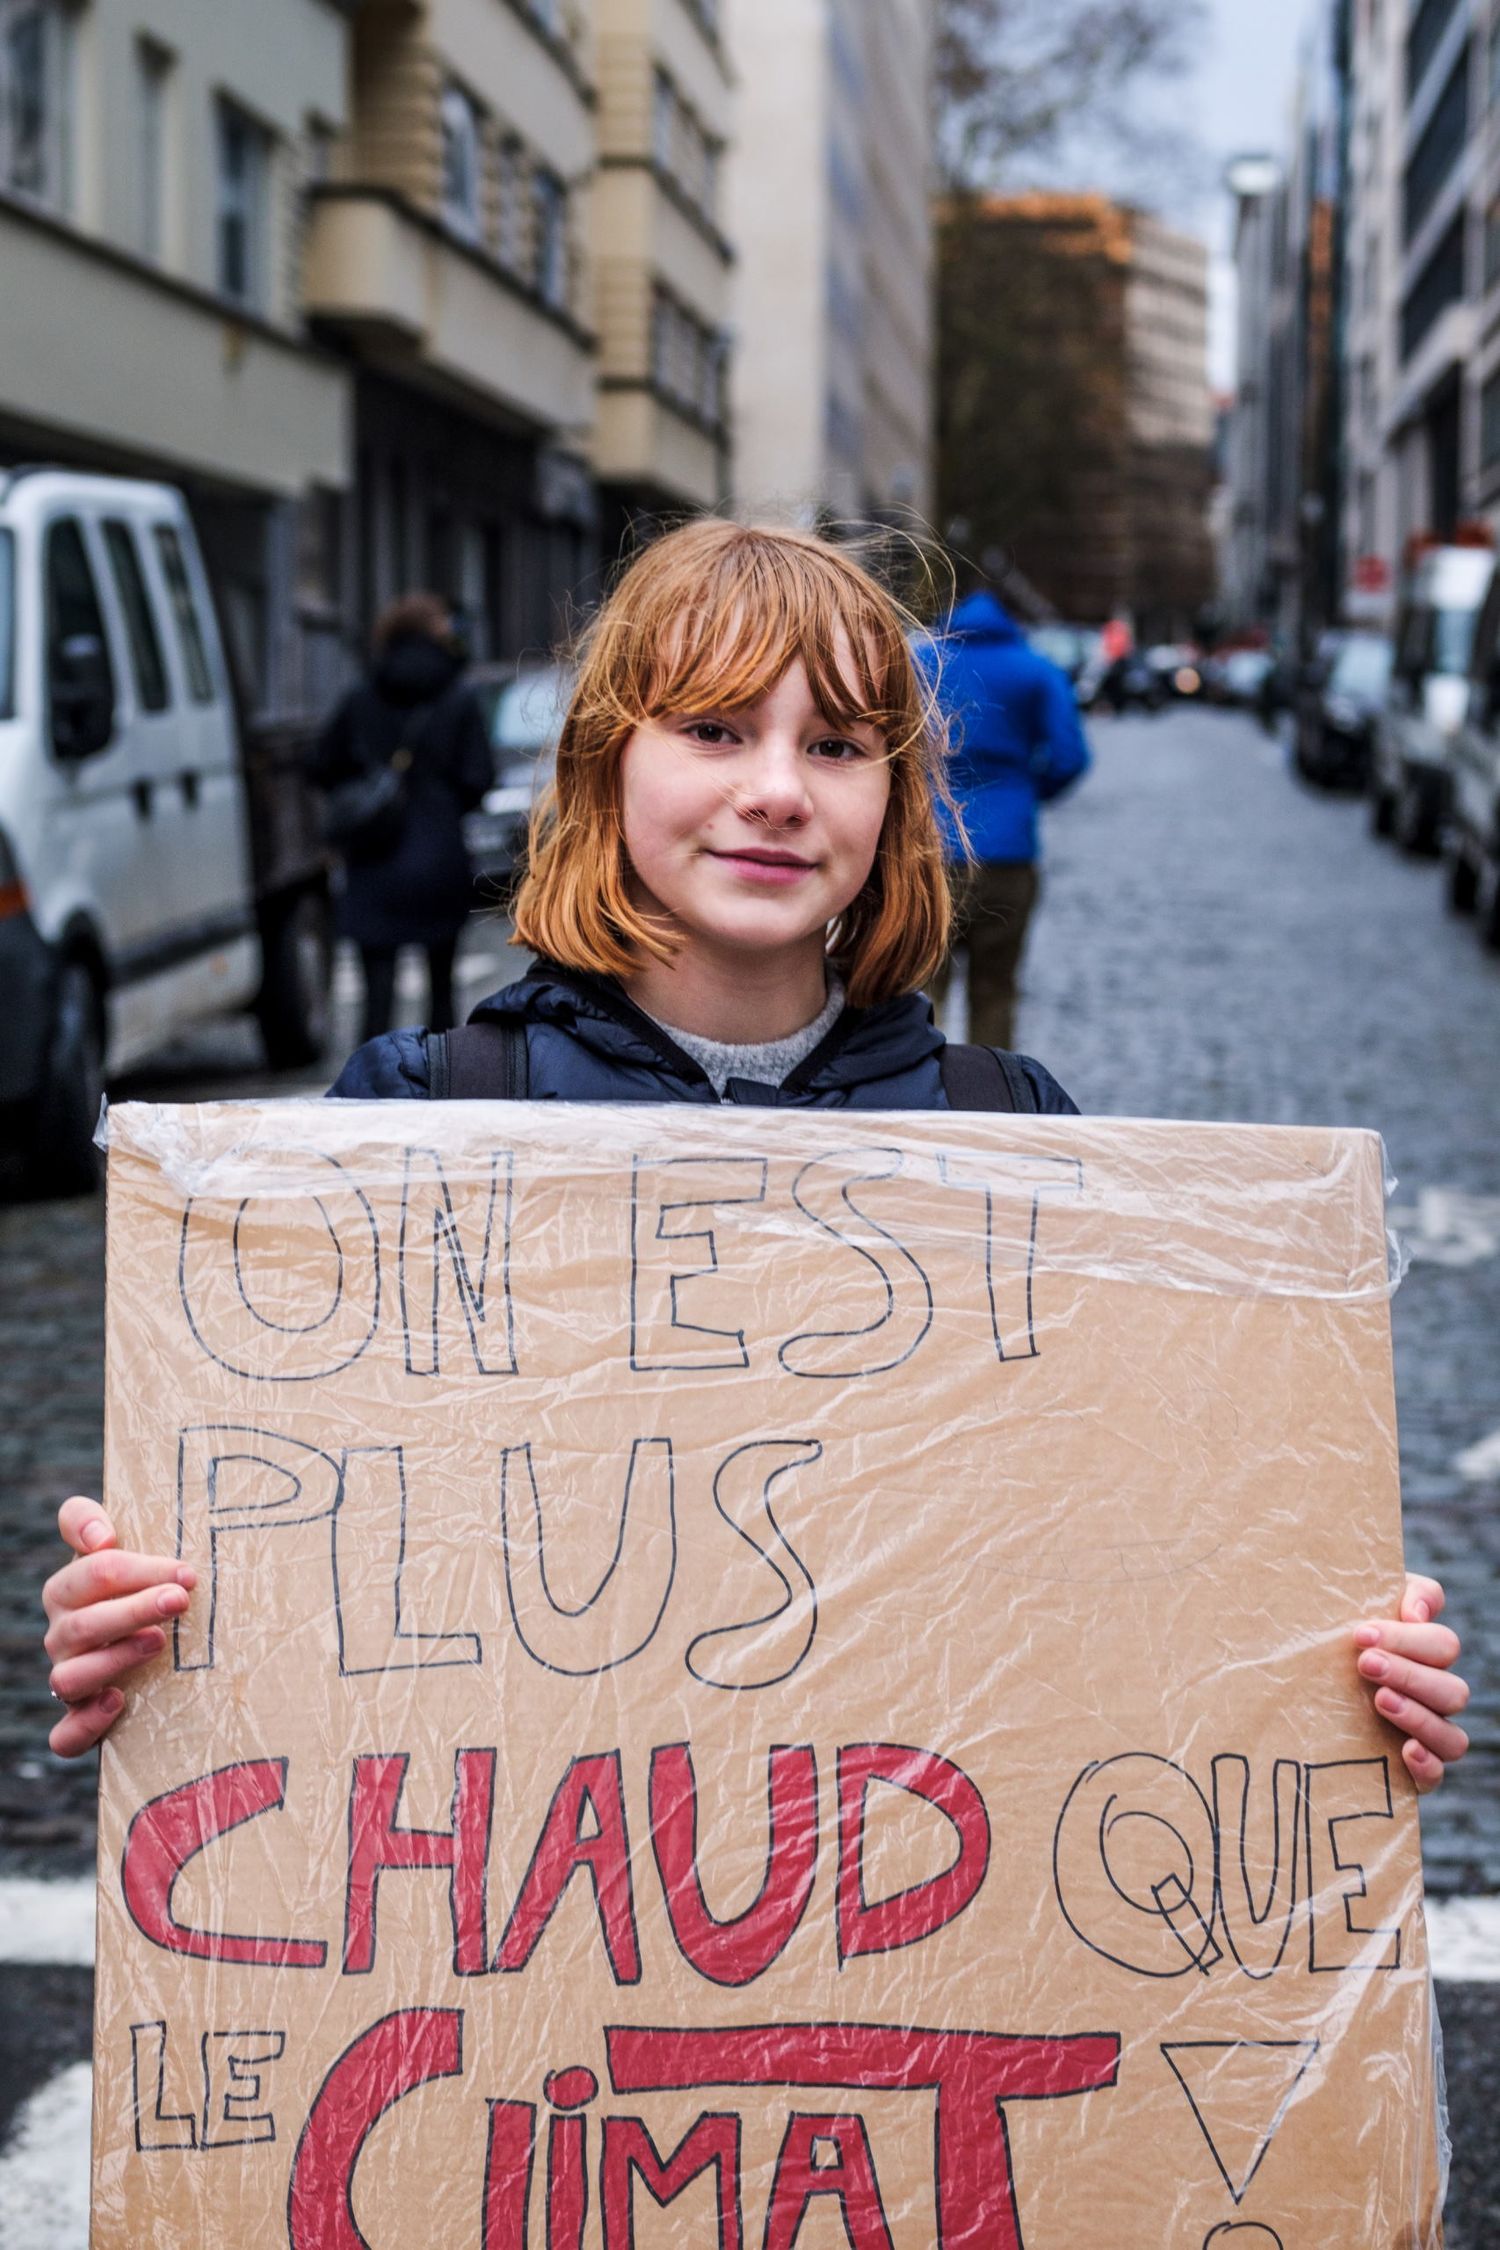 ON EST
PLUS
CHAUD QUE
LE CliMAT !